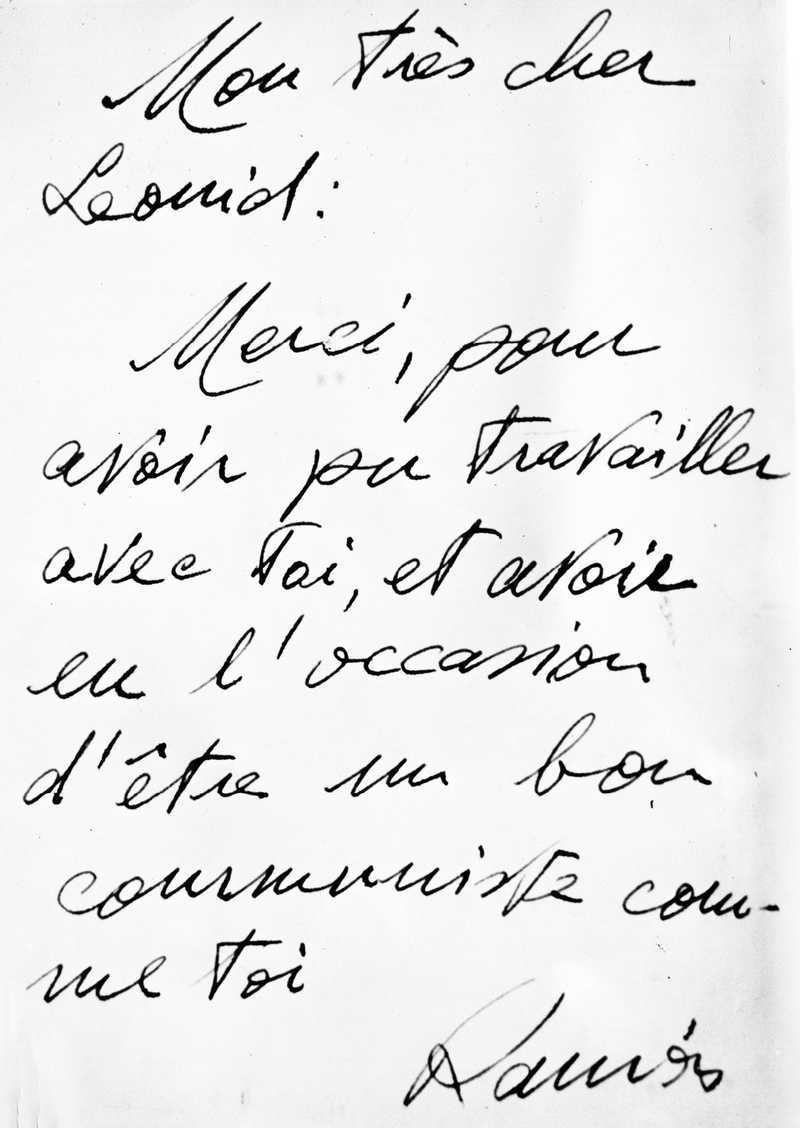 Mon très cher
Leonid:
Merci, pour
avoir pu travailler
avec toi, et avoir
eu l'occasion
d'être un bon
communiste com-
me toi
Ramón